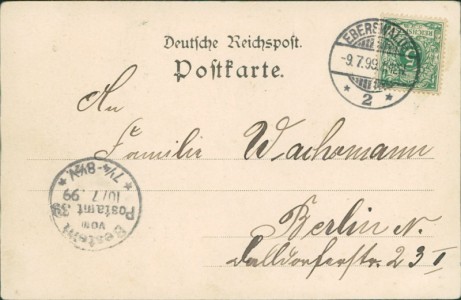 Deutsche Reichspost.
Postkarte.
EBERSWALDE
-9.7.99.
* 2 *
5
An
Familie Wachsmann
Berlin N.
Dalldorferstr. 23 I
Bestellt
vom
Postamt 39
10/7.99
* 7¼-8½V. *